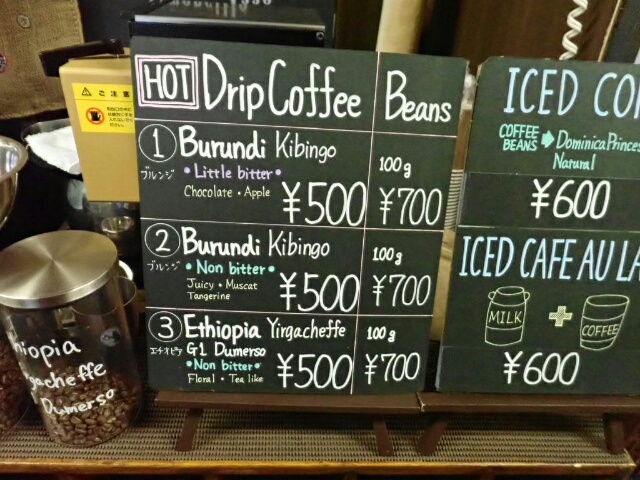 HOT Drip Coffee Beans
1 Burundi Kibingo
ブルンジ
• Little bitter •
Chocolate • Apple
¥500
100g
¥700
2 Burundi Kibingo
ブルンジ
• Non bitter •
Juicy • Muscat
Tangerine
¥500
100g
¥700
3 Ethiopia Yirgacheffe
エチオピア
G1 Dumerso
• Non bitter •
Floral • Tea like
¥500
100g
¥700
ICED CO
COFFEE
BEANS
Dominica Princes
Natural
¥600
ICED CAFE AU LA
MILK + COFFEE
¥600
ご注意
hiopia
gacheffe
Dumerso